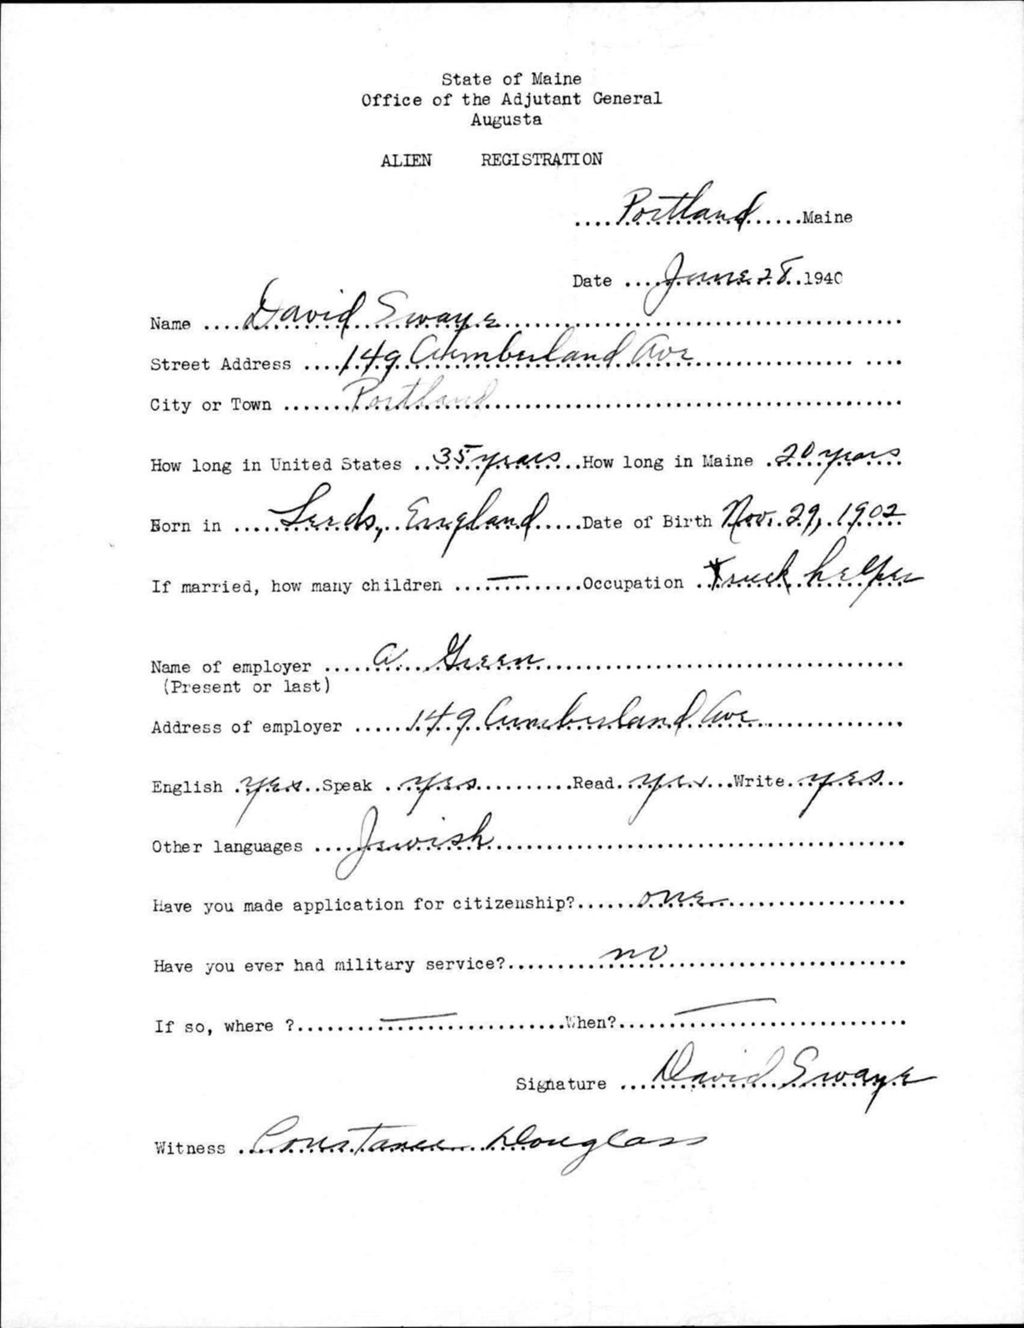 State of Maine
Office of the Adjutant General
Augusta
ALIEN REGISTRATION
....Portland......Maine
Date ....June 28..1940
Name ....David Swaye
Street Address ....149 Cumberland Ave
City or Town .......Portland
How long in United States ..35 years..How long in Maine .20 years
Born in .....Leeds, England.....Date of Birth Nov. 29, 1902
If married, how many children ...—...Occupation ..Truck helper
Name of employer .....A. Green
(Present or last)
Address of employer ......149 Cumberland Ave
English .yes..Speak ..yes..........Read..yes...Write..yes..
Other languages ....Jewish
Have you made application for citizenship?......one
Have you ever had military service?.........no
If so, where ?.........—.........When?......—
Signature ...David Swaye
Witness ..Constance Douglass